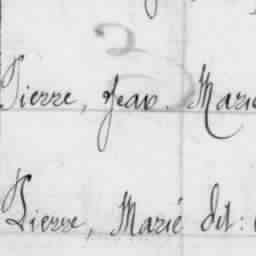 Pierre, Jean Marie
Pierre, Marié dit: